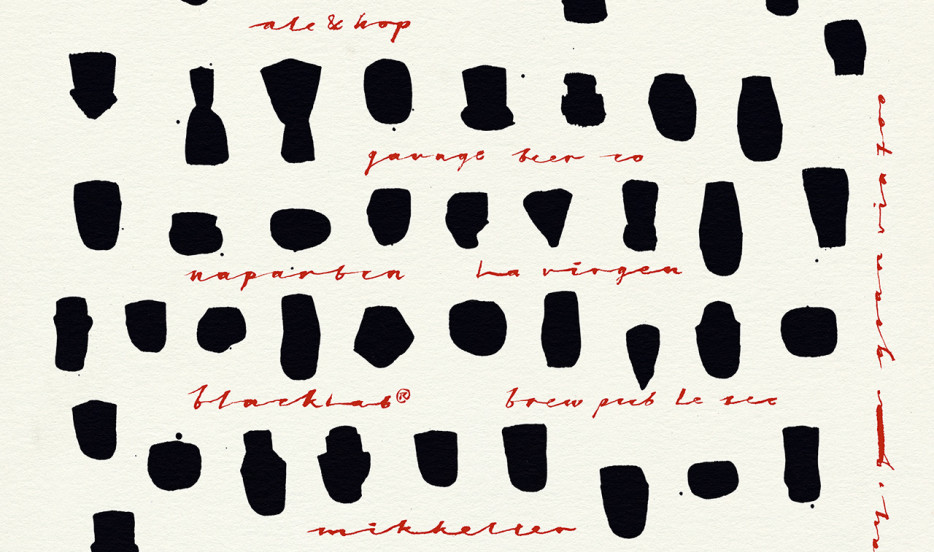 ale & hop
garage beer co
naparbcn
La virgen
blacklab®
brew pub le sec
mikkeller
gran via